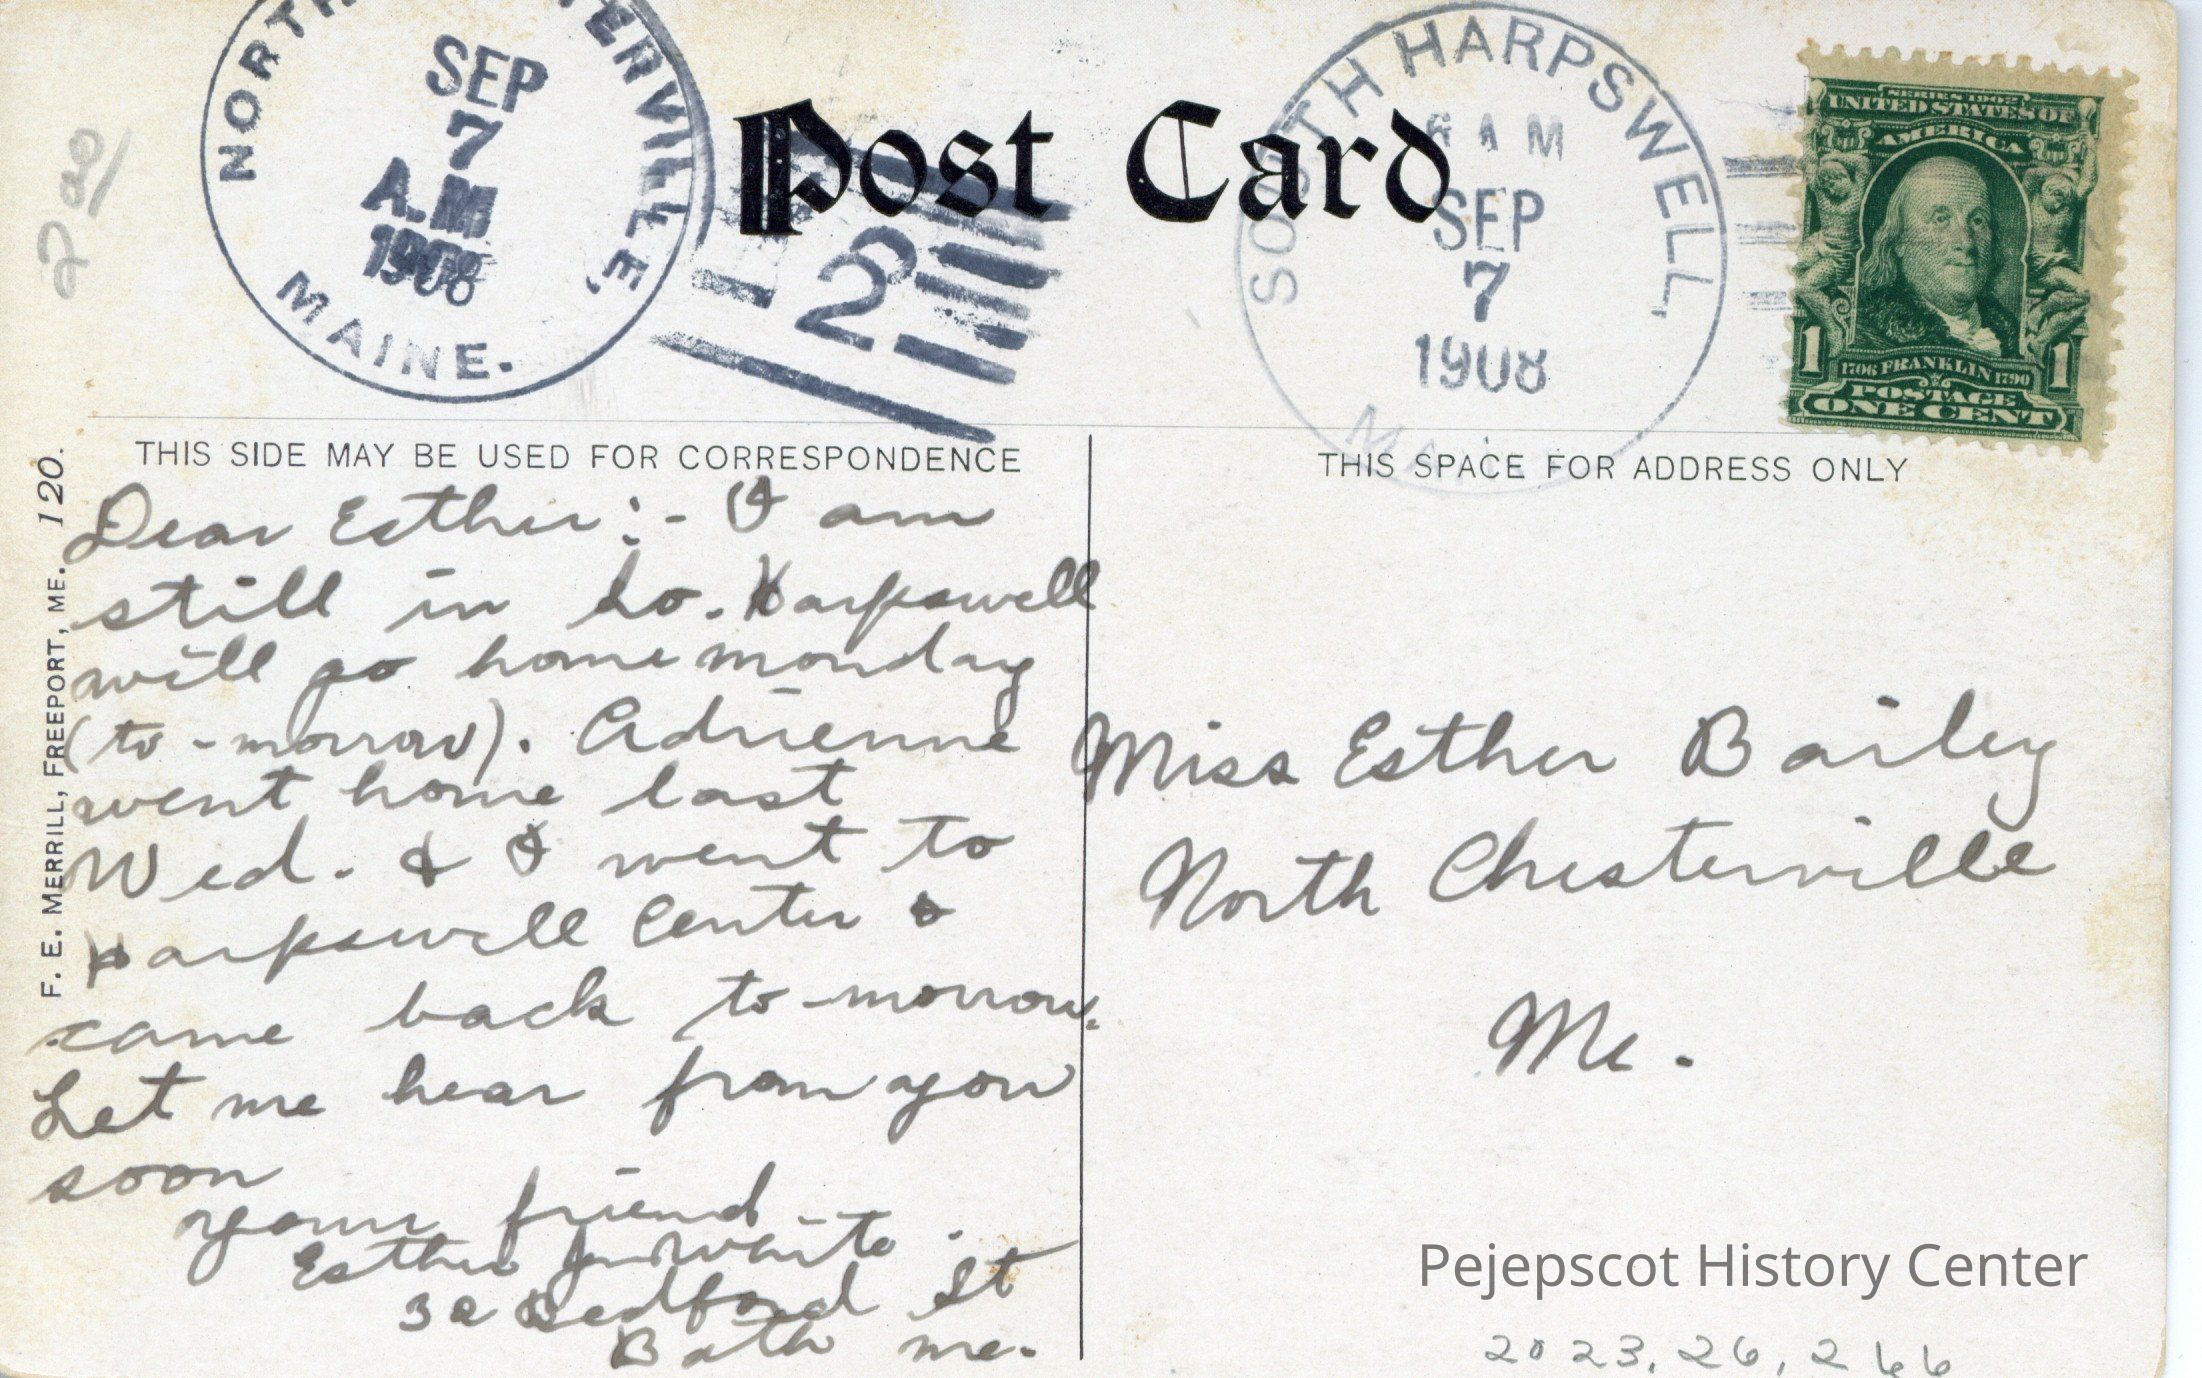 NORTH TERVILLE,
SEP
7
A.M
1908
MAINE.
2
Post Card
SOUTH HARPSWELL,
6 AM
SEP
7
1908
MA
SERIES 1902
UNITED STATES OF
AMERICA
1706 FRANKLIN 1790
1 1
POSTAGE
ONE CENT
F. E. MERRILL, FREEPORT, ME. 120.
THIS SIDE MAY BE USED FOR CORRESPONDENCE
Dear Esther:- I am
still in So. Harpswell
will go home monday
(to-morrow). Adrienne
went home last
Wed. & I went to
Harpswell Center &
came back to-morrow.
Let me hear from you
soon
your friend
Esther J. White.
32 Bedford St
Bath me.
THIS SPACE FOR ADDRESS ONLY
Miss Esther Bailey
North Chesterville
Me.
Pejepscot History Center
2023.26.266